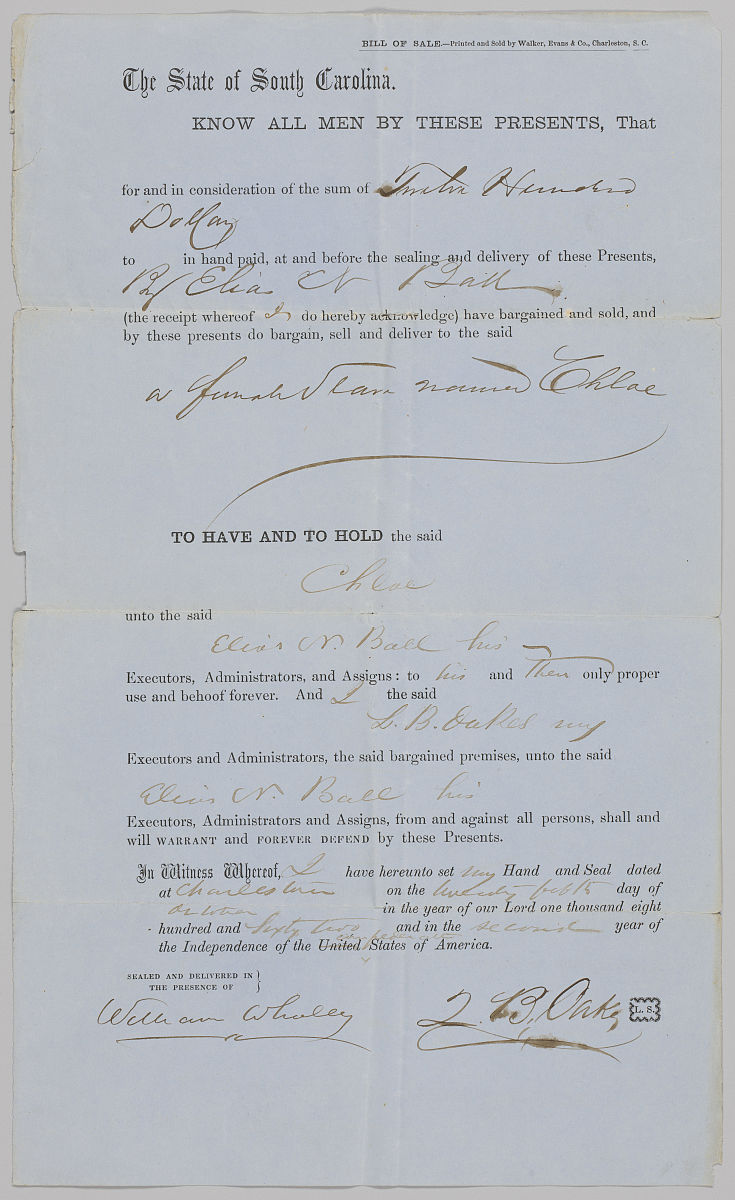 BILL OF SALE.—Printed and Sold by Walker, Evans & Co., Charleston, S. C.
The State of South Carolina.
KNOW ALL MEN BY THESE PRESENTS, That
for and in consideration of the sum of Twelve Hundred
Dollars
to in hand paid, at and before the sealing and delivery of these Presents,
By Elias N Ball
(the receipt whereof I do hereby acknowledge) have bargained and sold, and
by these presents do bargain, sell and deliver to the said
a female Slave named Chloe
TO HAVE AND TO HOLD the said
Chloe
unto the said
Elias N. Ball his
Executors, Administrators, and Assigns: to his and Their only proper
use and behoof forever. And I the said
Z. B. Oakes my
Executors and Administrators, the said bargained premises, unto the said
Elias N. Ball his
Executors, Administrators and Assigns, from and against all persons, shall and
will WARRANT and FOREVER DEFEND by these Presents.
In Witness Whereof, I have hereunto set my Hand and Seal dated
at Charleston on the twenty fifth day of
October in the year of our Lord one thousand eight
hundred and Sixty two and in the second year of
the Independence of the United confederate States of America.
SEALED AND DELIVERED IN
THE PRESENCE OF
William Whaley Z. B. Oakes L. S.